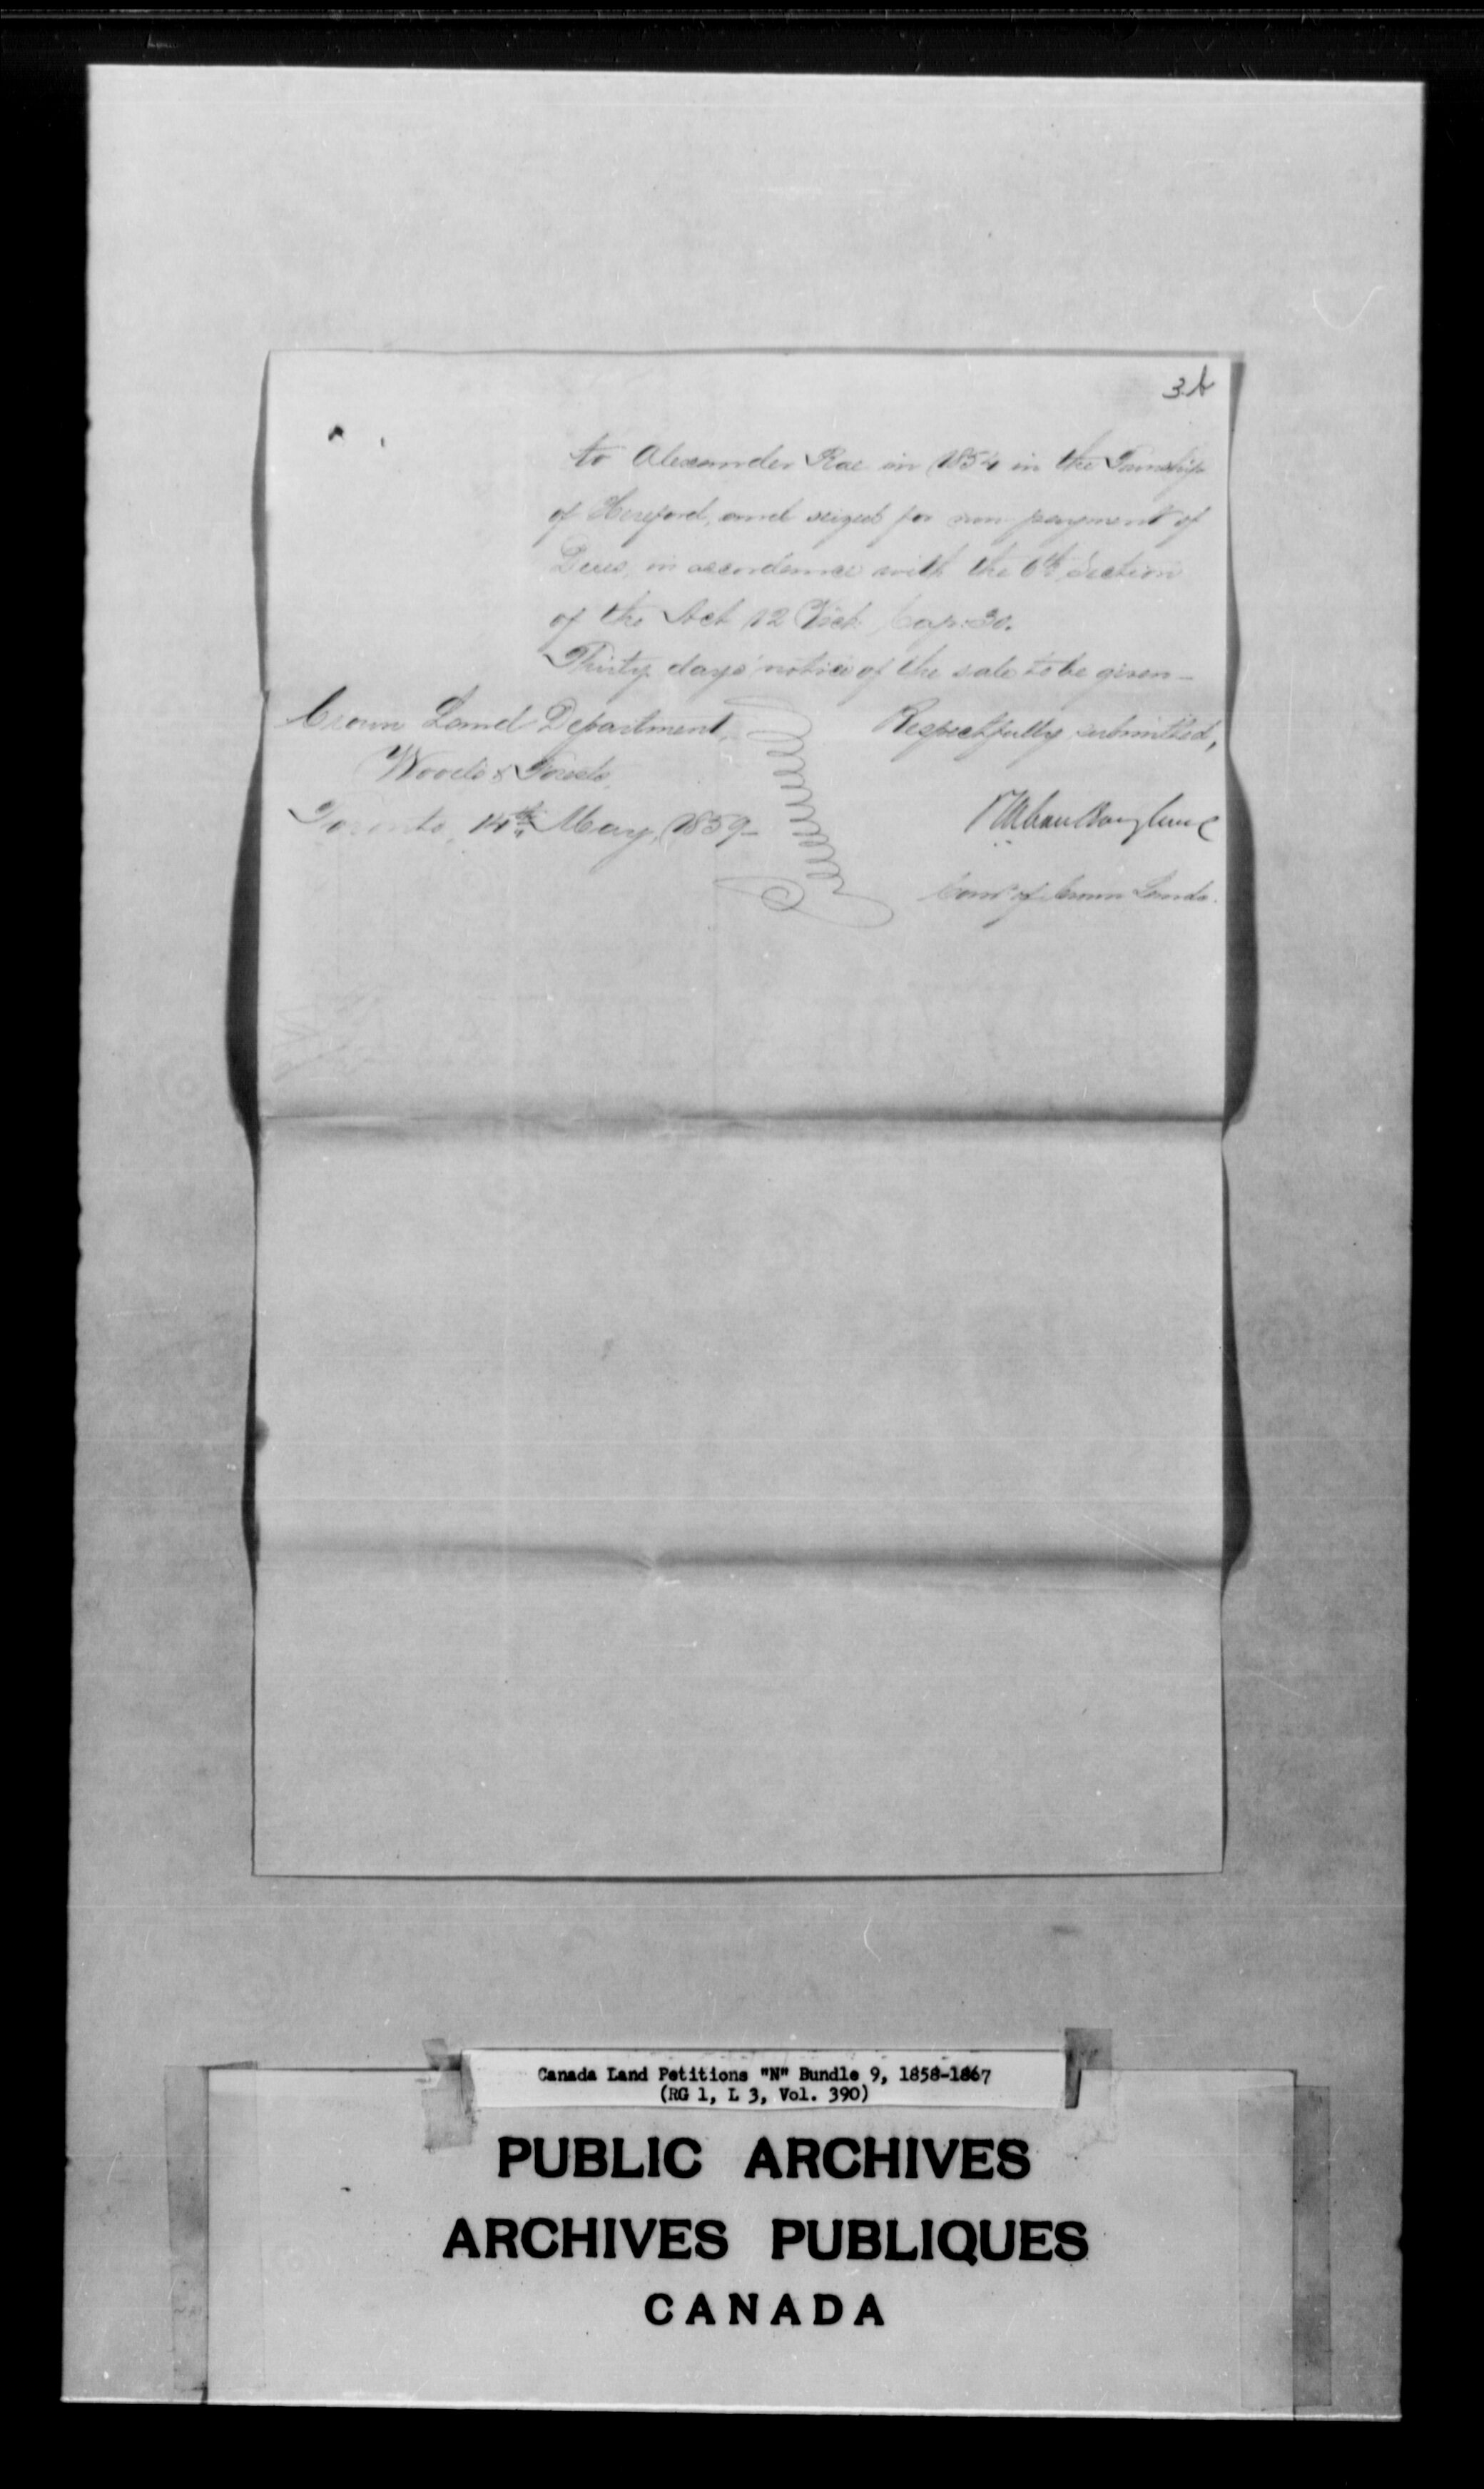 3b
to Alexander Rae in 1854 in the Township
of Hereford, and seized for non payment of
Dues, in accordance with the 6th Section
of the Act 12 Vict. Cap: 30.
Thirty days' notice of the sale to be given—
Crown Land Department,
Woods & Forests,
Toronto, 14th May, 1859—
Respectfully submitted,
Comr of Crown Lands.
Canada Land Petitions "N" Bundle 9, 1858-1867
(RG 1, L 3, Vol. 390)
PUBLIC ARCHIVES
ARCHIVES PUBLIQUES
CANADA